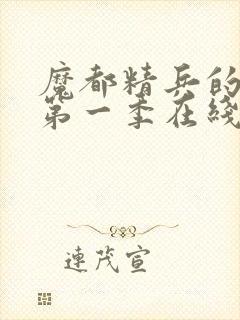 魔都精兵的
第一季在綫
連茂宣